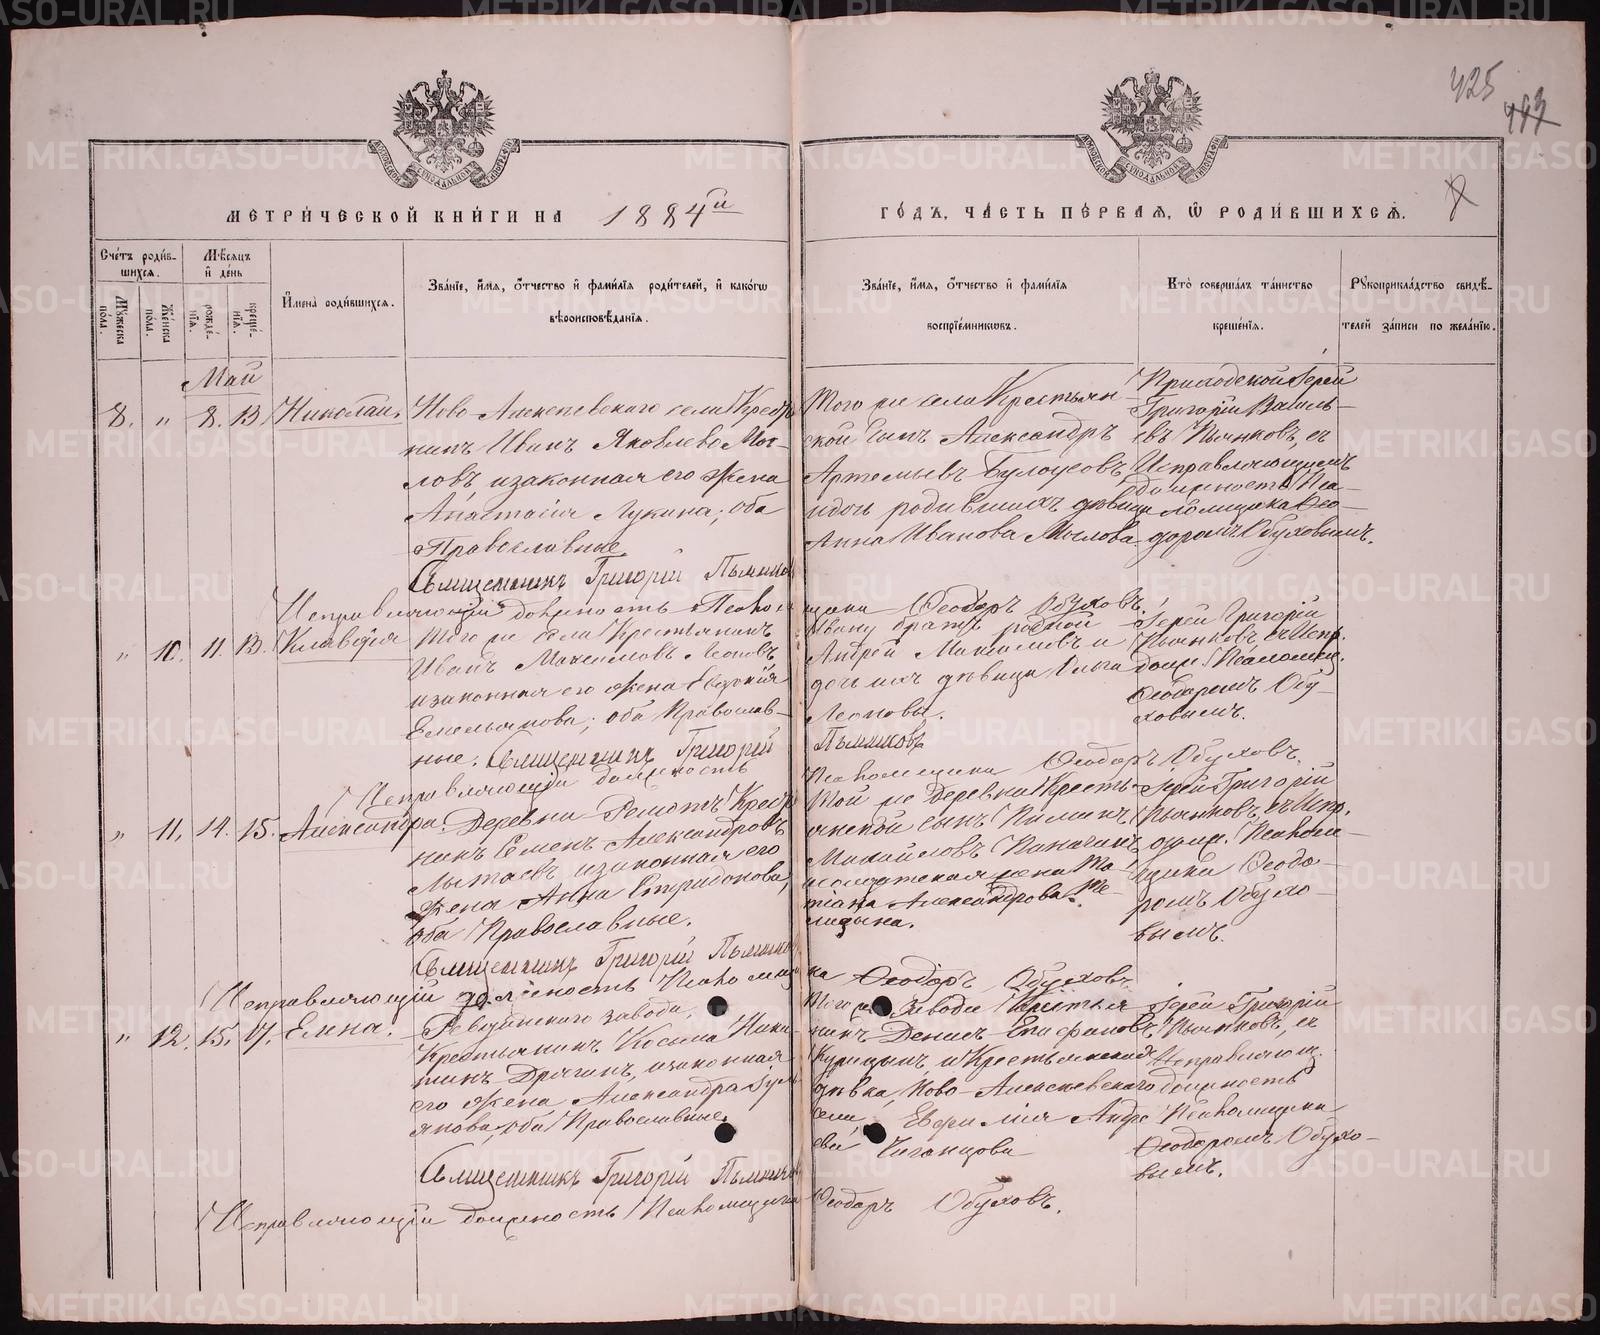 425
МЕТРИ́ЧЕСКОЙ КНИ́ГИ НА 1884й ГО́ДЪ, ЧА́СТЬ ПЕ́РВАѦ, Ѡ РОДИ́ВШИХСѦ.
Сче́тъ роди́в-
шихсѧ.
Мѣ́сѧцъ
и҆ де́нь
Му́жеска
по́ла.
Же́нска
по́ла.
рожде́-
нїѧ.
креще́-
нїѧ.
И҆мена̀ роди́вшихсѧ.
Зва́нїе, и҆́мѧ, ѻ҆́тчество и҆ фами́лїѧ роди́телей, и҆ како́гѡ
вѣроисповѣ́данїѧ.
Зва́нїе, и҆́мѧ, ѻ҆́тчество и҆ фами́лїѧ
воспрїе́мникѡвъ.
Кто̀ соверша́лъ та́инство
креще́нїѧ.
Рꙋкоприкла́дство свидѣ́-
телей за́писи по жела́нїю.
Май
8. " 8. 13. Николай.
Ново-Алексѣевскаго села Кресть
нинъ Иванъ Яковлевъ Мас-
ловъ и законная его жена
Анастасія Лукина; оба
Православные
Того же села Крестьян-
ской сынъ Александръ
Артемьевъ Бѣлоусовъ
и дочь родившихъ дѣвица
Анна Иванова Маслова
Приходской Іерей
Григорій Василь-
евъ Пьянковъ, съ
Исправляющимъ
должность Пса-
ломщика Ѳео-
доромъ Обуховымъ.
Священникъ Григорій Пьянков
Исправляющій должность Псаломщика Ѳеодоръ Обуховъ.
" 10. 11. 13. Клавдія
Того же села Крестьянинъ
Иванъ Максимовъ Леоновъ
и законная его жена Евдокія
Емельянова; оба Православ-
ные.
Ивану братъ родной
Андрей Максимовъ и
дочь ихъ дѣвица Ольга
Леоновы.
Іерей Григорій
Пьянковъ, съ Испр.
долж. Псаломщ.
Ѳеодоромъ Обу-
ховымъ.
Священникъ Григорій Пьянковъ
Исправляющій должность Псаломщика Ѳеодоръ Обуховъ.
" 11. 14. 15. Александра.
Деревни Кресть
нинъ Семенъ Александровъ
и законная его
жена Анна Спиридонова,
оба Православные.
Той же деревни Кресть-
янской сынъ
Михайловъ
и солдатская жена Та-
тіана Александрова
Іерей Григорій
Пьянковъ, съ Испр.
долж. Псалом-
щика Ѳеодо-
ромъ Обухо-
вымъ.
Священникъ Григорій Пьянков
Исправляющій должность Псаломщика Ѳеодоръ Обуховъ
" 12. 15. 17. Елена.
Ревдинскаго завода,
Крестьянинъ Косьма Ники-
тинъ Дрягинъ, и законная
его жена Александра Іуль-
янова, оба Православные.
Того же завода Крестья-
нинъ Денисъ Епифановъ
Курицынъ, и Крестьянская
дѣвка, Ново-Алексѣевскаго
села, Евфимія Андре-
ева
Іерей Григорій
Пьянковъ, съ
Исправляющ.
должность
Псаломщика
Ѳеодоромъ Обухо-
вымъ.
Священникъ Григорій Пьянков
Исправляющій должность Псаломщика Ѳеодоръ Обуховъ.
METRIKI.GASO-URAL.RU